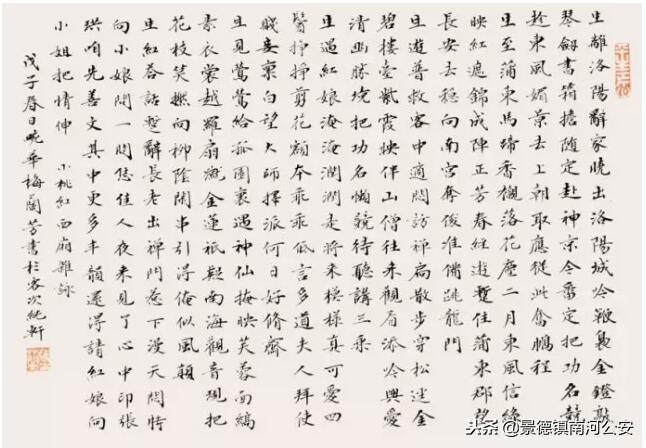 生離洛陽辭家曉出洛陽城吟鞭裊金鐙敲
琴劍書箱擔隨定赴神京今番定把功名競
趁東風媚景去上朝取應從此奮鵬程
生至蒲東馬蹄香襯落花塵二月東風信綠
映紅遮錦成陣正芳春經遊暫住蒲東郡望
長安去穩向南宮奪俊準備跳龍門
生遊普救客中適悶訪禪扃散步穿松逕金
碧樓臺紫霞映伴山僧往來觀看添吟興愛
清幽勝境把功名懶競待聽講三乘
生遇紅娘淹淹潤潤走將來模樣真可愛四
鬢掙掙剪花額本乖乖低言多道夫人拜使
賤妾稟白望大師擇派何日好脩齋
生見鶯鶯給孤園裏遇神仙掩映芙蓉面縞
素衣裳越羅扇蹴金蓮祇疑南海觀音現把
花枝笑撚向柳陰閒串引得俺似風顛
生紅答話暫辭長老出禪門惹下漫天悶特
向小娘問一問恁佳人夜來見了心中印張
珙咱先善文其中更多丰韻還得請紅娘向
小姐把情伸 小桃紅西廂雜詠
戊子春日畹華梅蘭芳書於客次純軒
头条 @景德镇南河公安